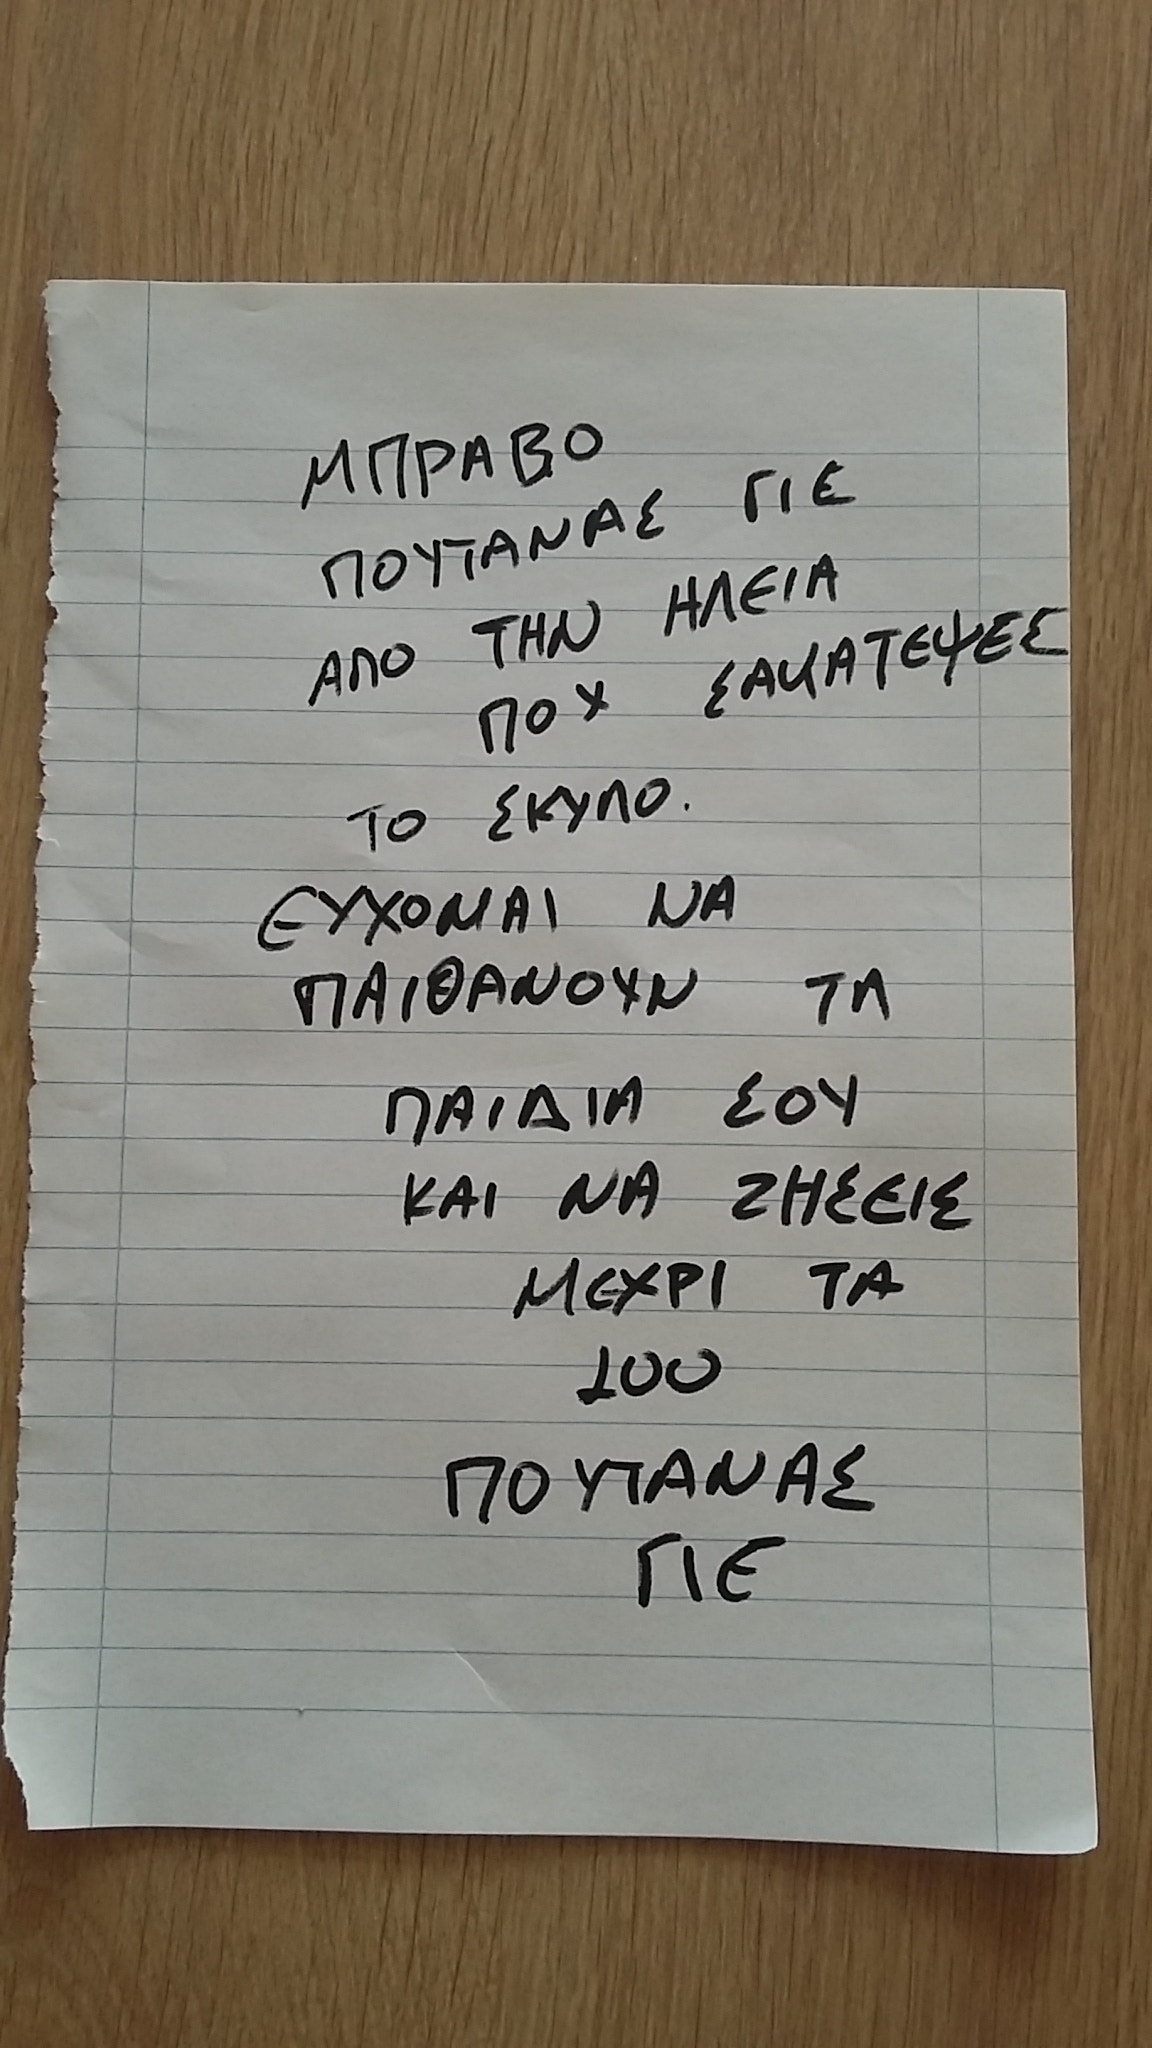 ΜΠΡΑΒΟ
ΠΟΥΤΑΝΑΣ ΓΙΕ
ΑΠΟ ΤΗΝ ΗΛΕΙΑ
ΠΟΥ ΣΑΚΑΤΕΨΕΣ
ΤΟ ΣΚΥΛΟ.
ΕΥΧΟΜΑΙ ΝΑ
ΠΑΙΘΑΝΟΥΝ ΤΑ
ΠΑΙΔΙΑ ΣΟΥ
ΚΑΙ ΝΑ ΖΗΣΕΙΣ
ΜΕΧΡΙ ΤΑ
100
ΠΟΥΤΑΝΑΣ
ΓΙΕ